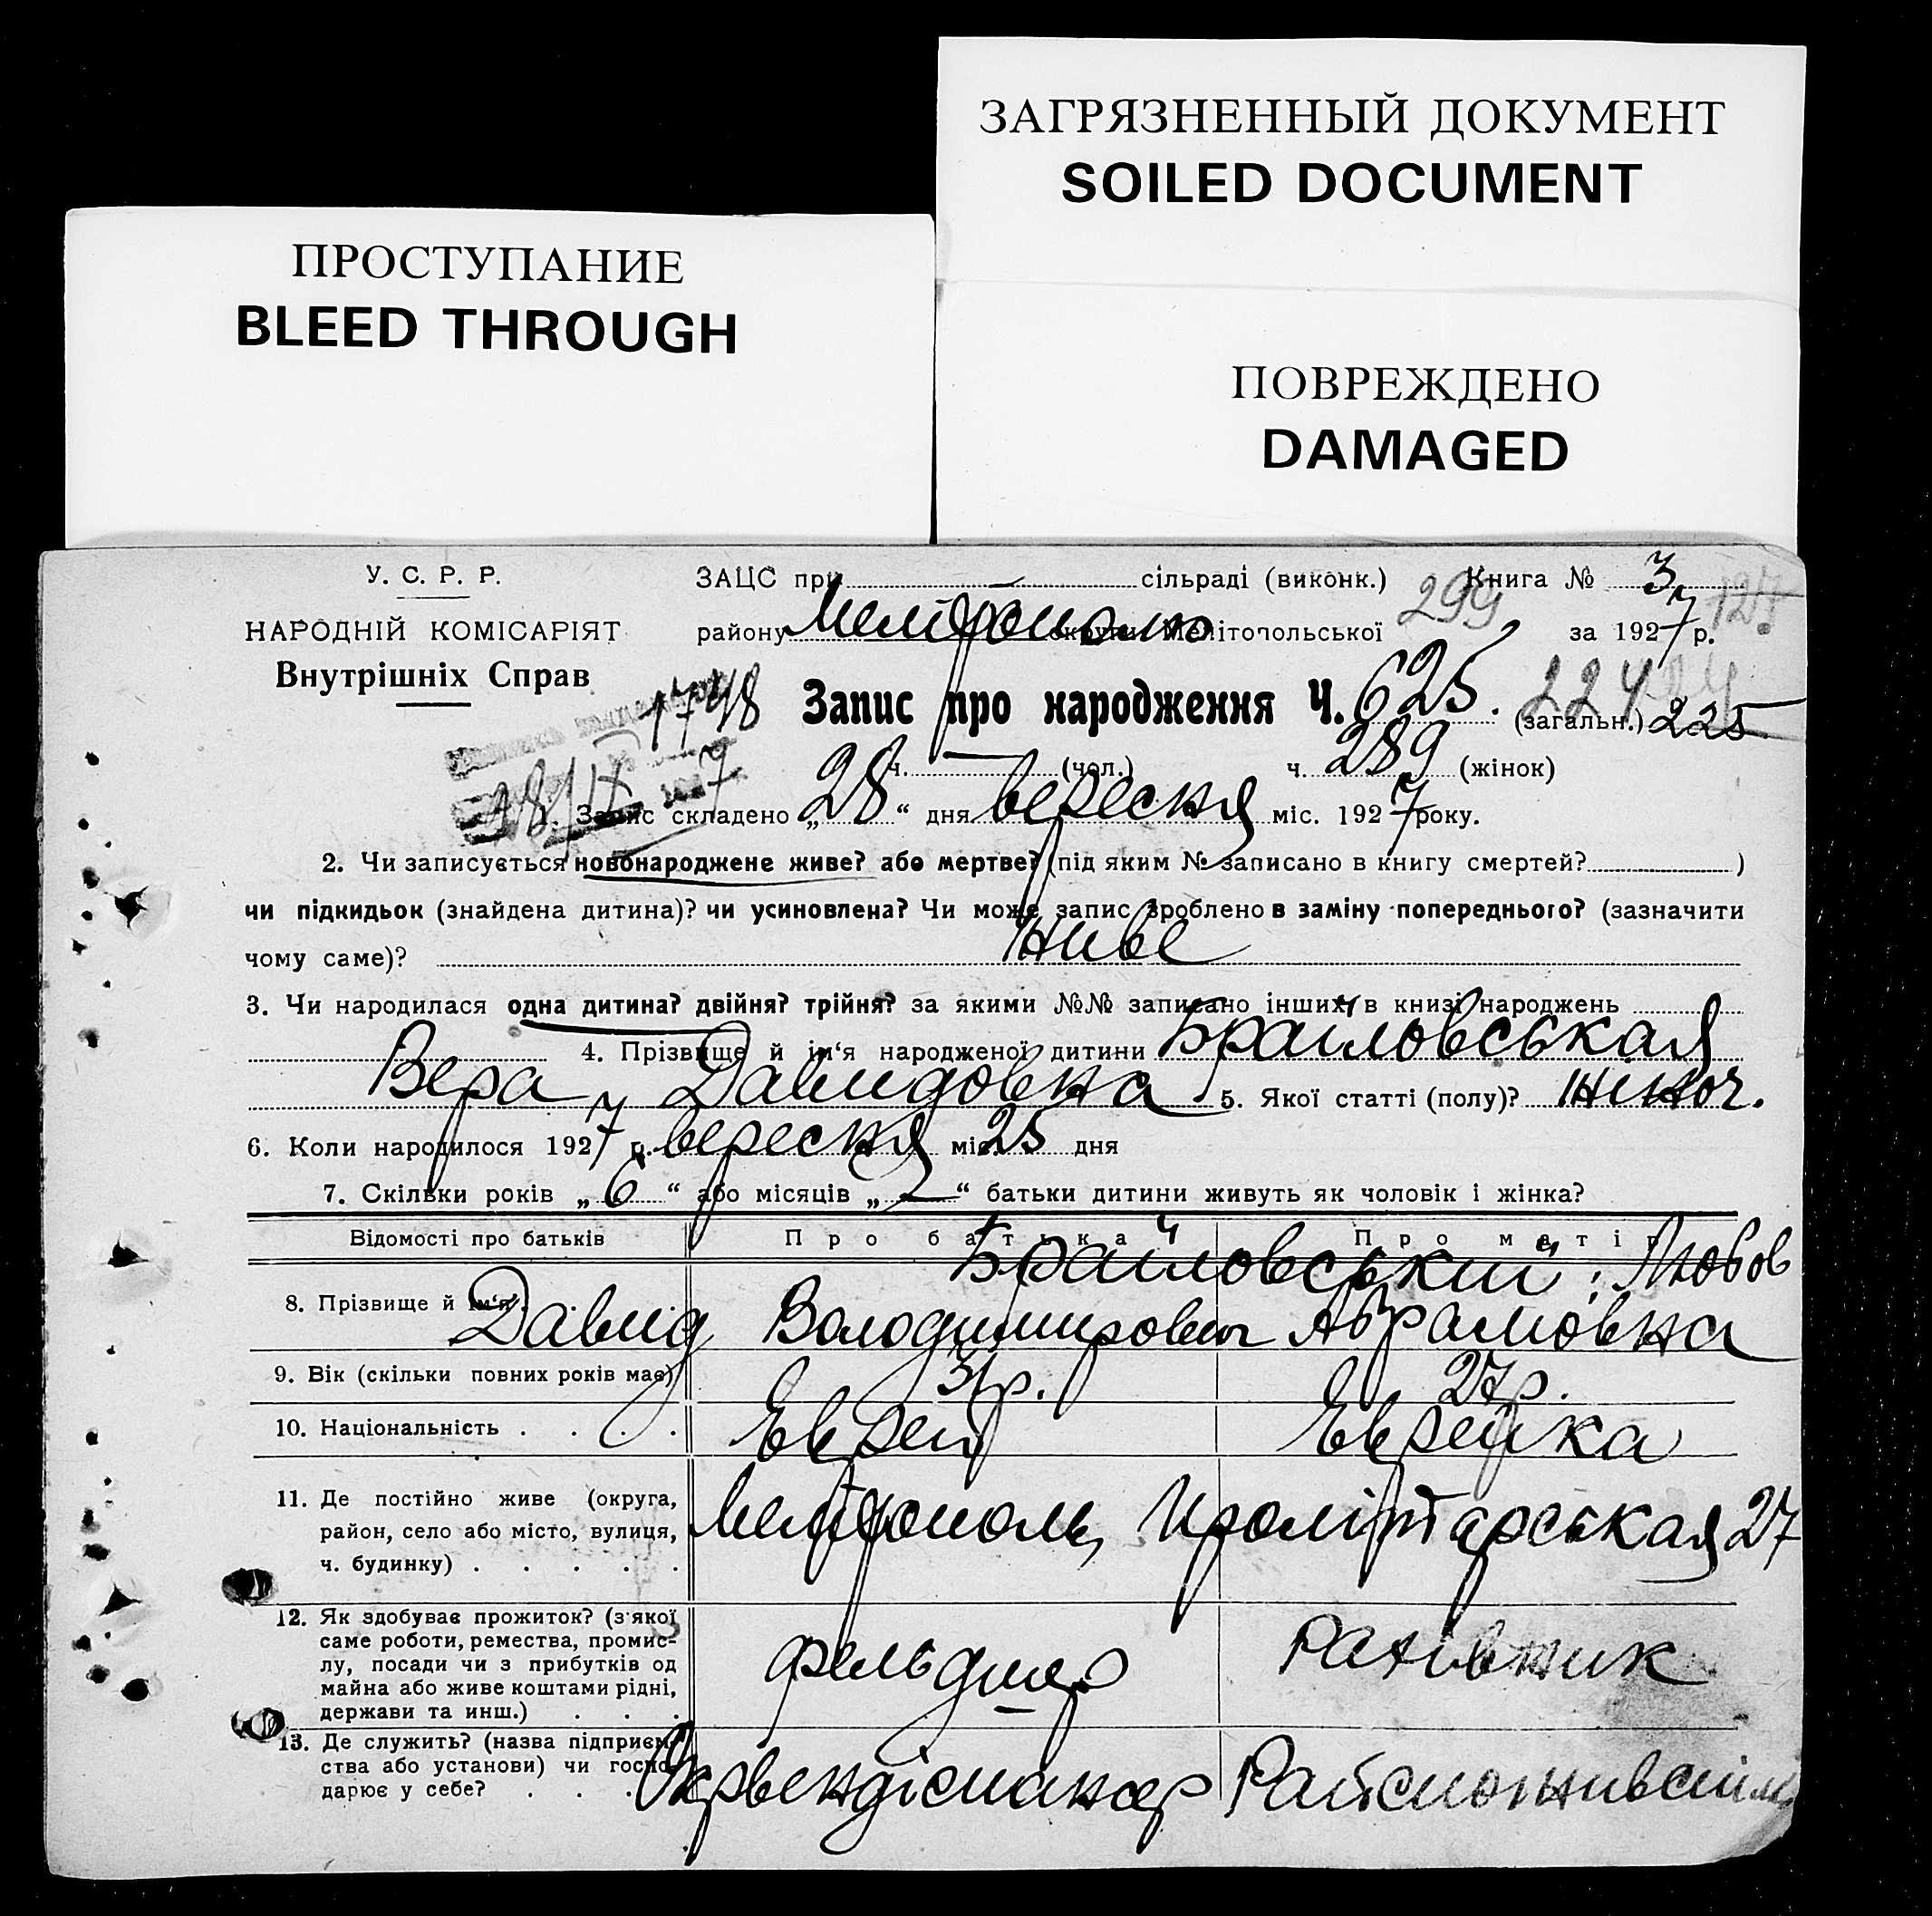 ЗАГРЯЗНЕННЫЙ ДОКУМЕНТ
SOILED DOCUMENT
ПРОСТУПАНИЕ
BLEED THROUGH
ПОВРЕЖДЕНО
DAMAGED
У. С. Р. Р.
НАРОДНІЙ КОМІСАРІЯТ
Внутрішніх Справ
ЗАЦС при — сільраді (виконк.) Книга № 3
299 127
району Мелітополю округи Мелітопольської за 1927 р.
1748
Запис про народження Ч. 625. (загальн.) 224 225
ч. — (чол.) ч. 289 (жінок)
28/IX 7
1. Запис складено „28“ дня вересня міс. 1927 року.
2. Чи записується новонароджене живе? або мертве? (під яким № записано в книгу смертей? )
чи підкидьок (знайдена дитина)? чи усиновлена? Чи може запис зроблено в заміну попереднього? (зазначити
чому саме)? живе
3. Чи народилася одна дитина? двійня? трійня? за якими №№ записано інших в книзі народжень
4. Прізвище й ім‘я народженої дитини Браиловськая
Вера Давидовна 5. Якої статті (полу)? жіноч.
6. Коли народилося 1927 р. вересня міс. 25 дня
7. Скільки років „6“ або місяців „2“ батьки дитини живуть як чоловік і жінка?
Відомості про батьків Про батька Про матір
8. Прізвище й ім‘я Браиловський Давид Володимирович Любов Абрамовна
9. Вік (скільки повних років має) 31 р. 27 р.
10. Національність . . . . Еврей Еврейка
11. Де постійно живе (округа,
район, село або місто, вулиця,
ч. будинку) . . . . .
Мелітополь, Пролітарськая 27
12. Як здобуває прожиток? (з якої
саме роботи, ремества, промис-
лу, посади чи з прибутків од
майна або живе коштами рідні,
держави та инш.) . . .
фельдшер Рахівник
13. Де служить? (назва підприєм-
ства або установи) чи госпо-
дарює у себе? . . . .
Окрвендіспансер